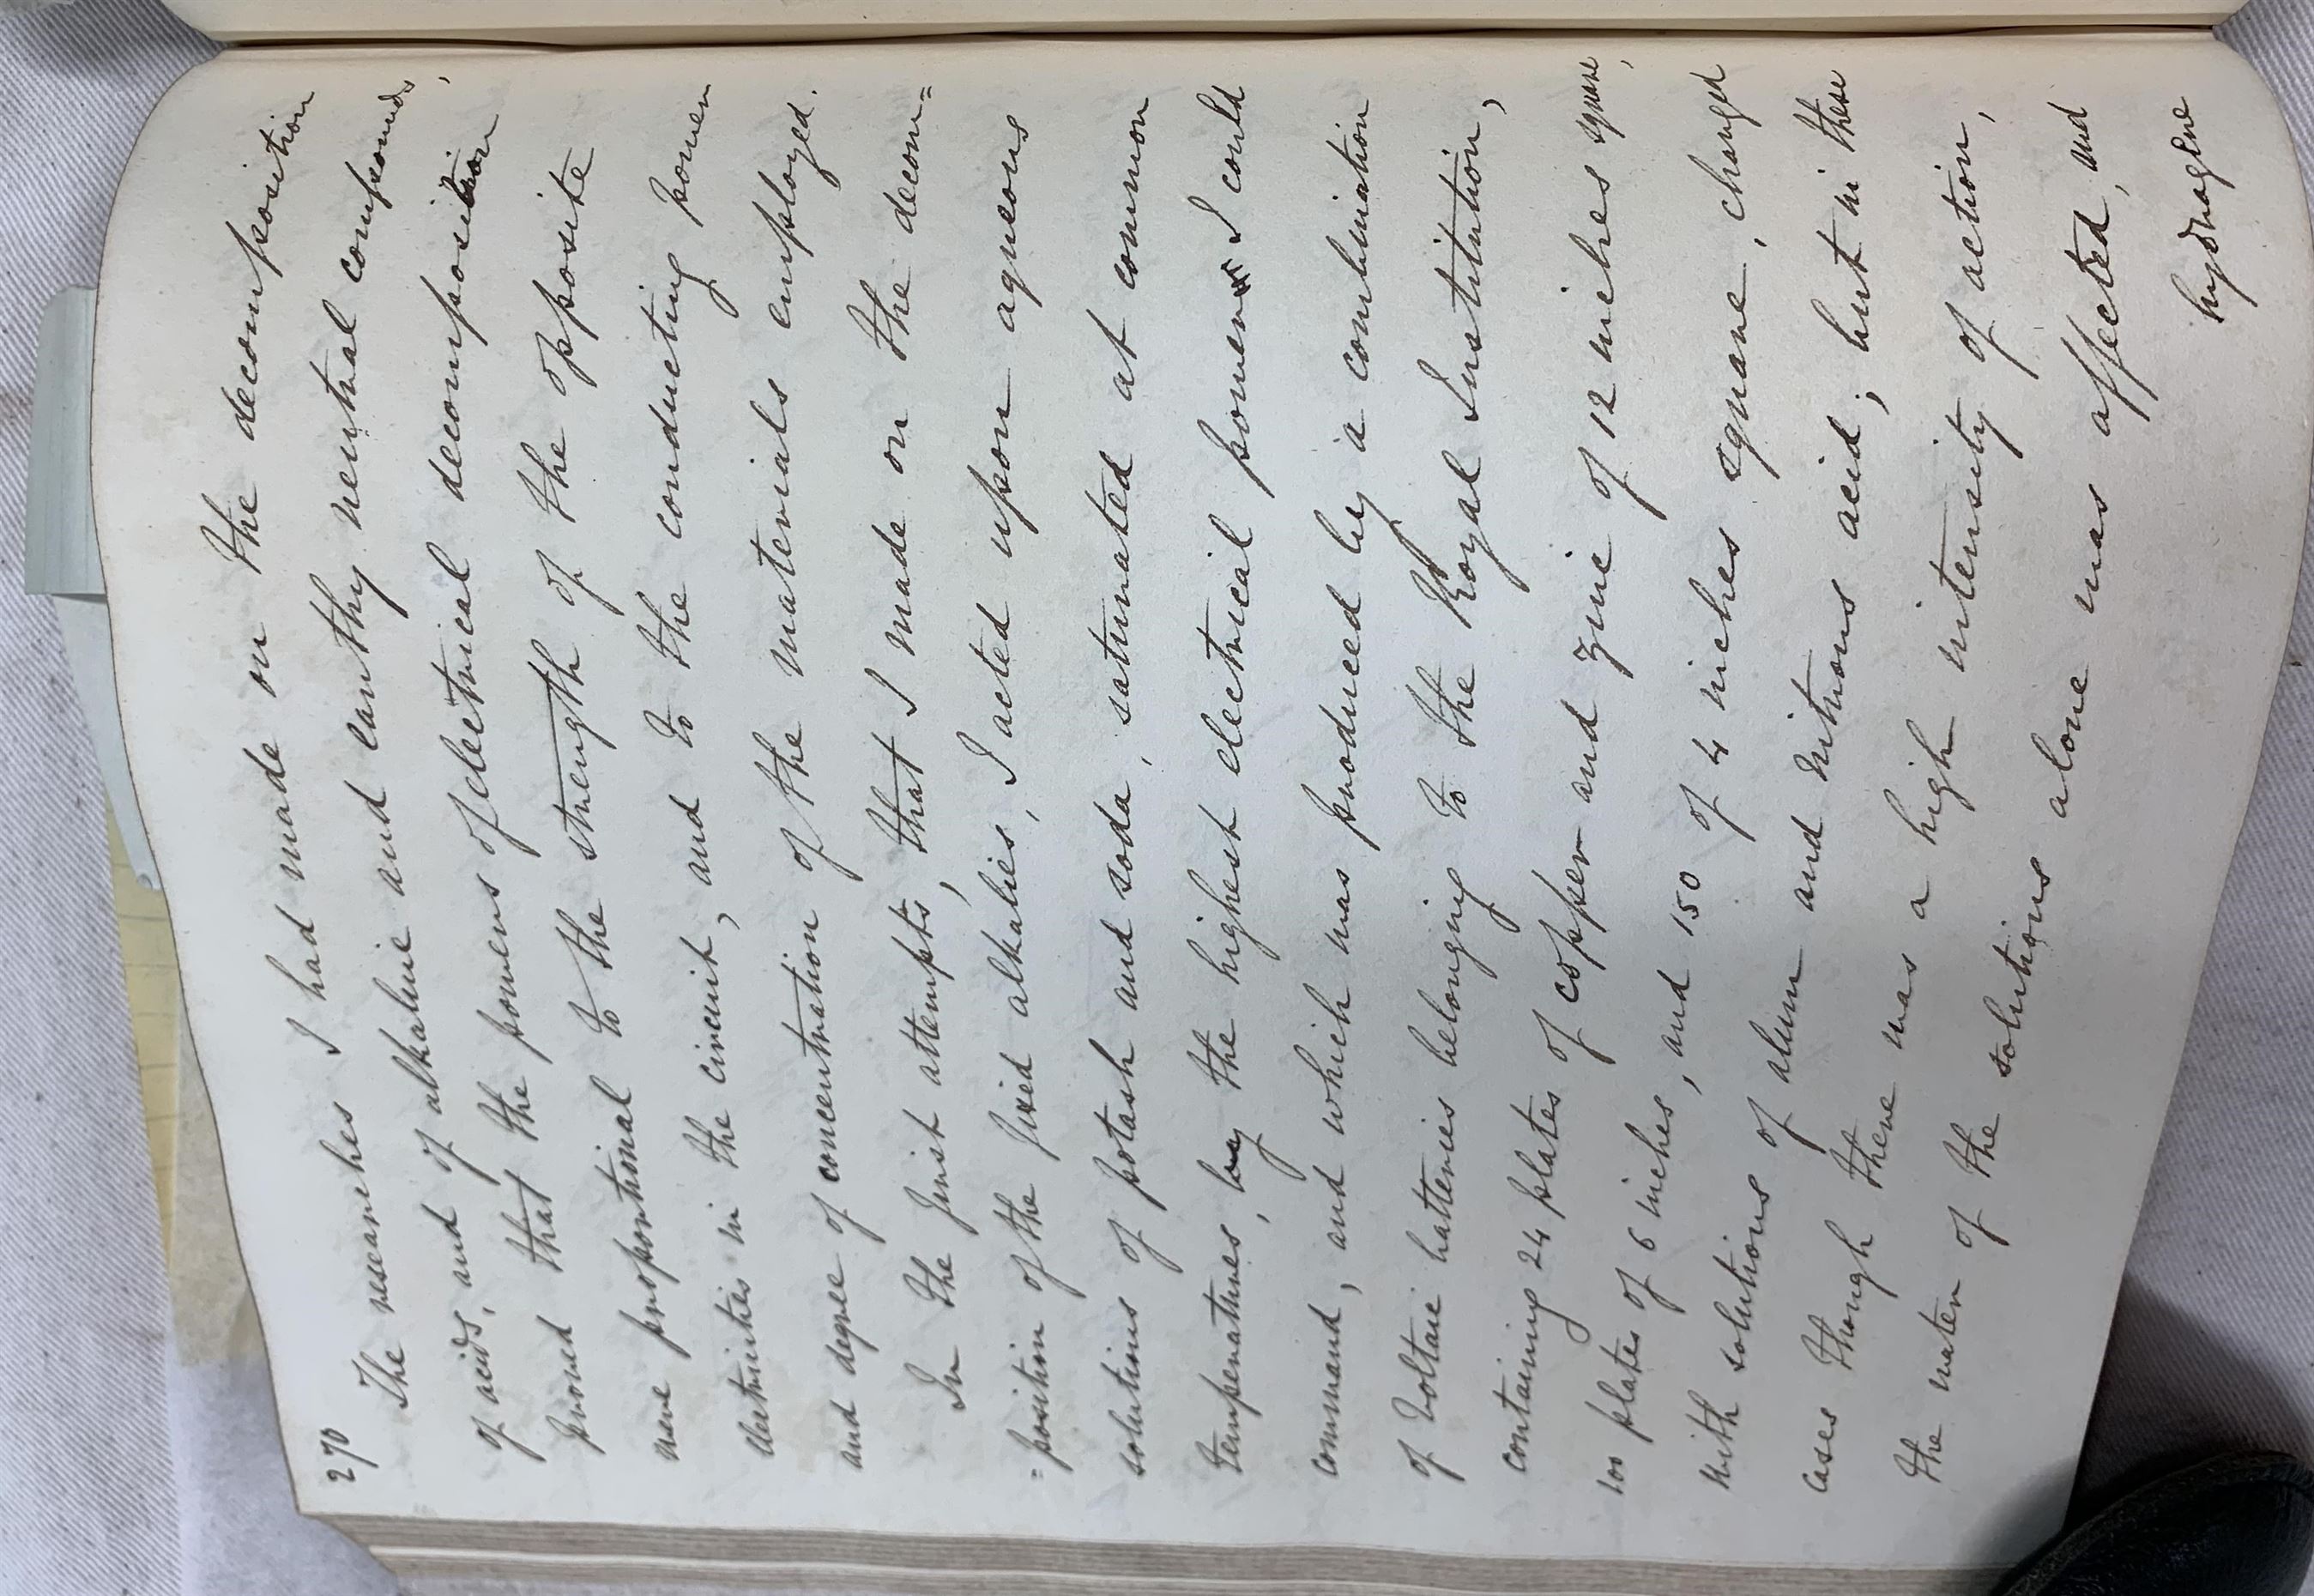 270
The researches I had made on the decomposition
of acids, and of alkaline and earthy neutral compounds,
proved that the powers of electrical decomposition
were proportional to the strength of the opposite
electricities in the circuit, and to the conducting power
and degree of concentration of the materials employed.
In the first attempts, that I made on the decom=
=position of the fixed alkalies, I acted upon aqueous
solutions of potash and soda, saturated at common
temperatures, by the highest electrical power I could
command, and which was produced by a combination
of Voltaic batteries belonging to the Royal Institution,
containing 24 plates of copper and zinc of 12 inches square,
100 plates of 6 inches, and 150 of 4 inches square, charged
with solutions of alum and nitrous acid; but in these
cases though there was a high intensity of action,
the water of the solutions alone was affected, and
hydrogene